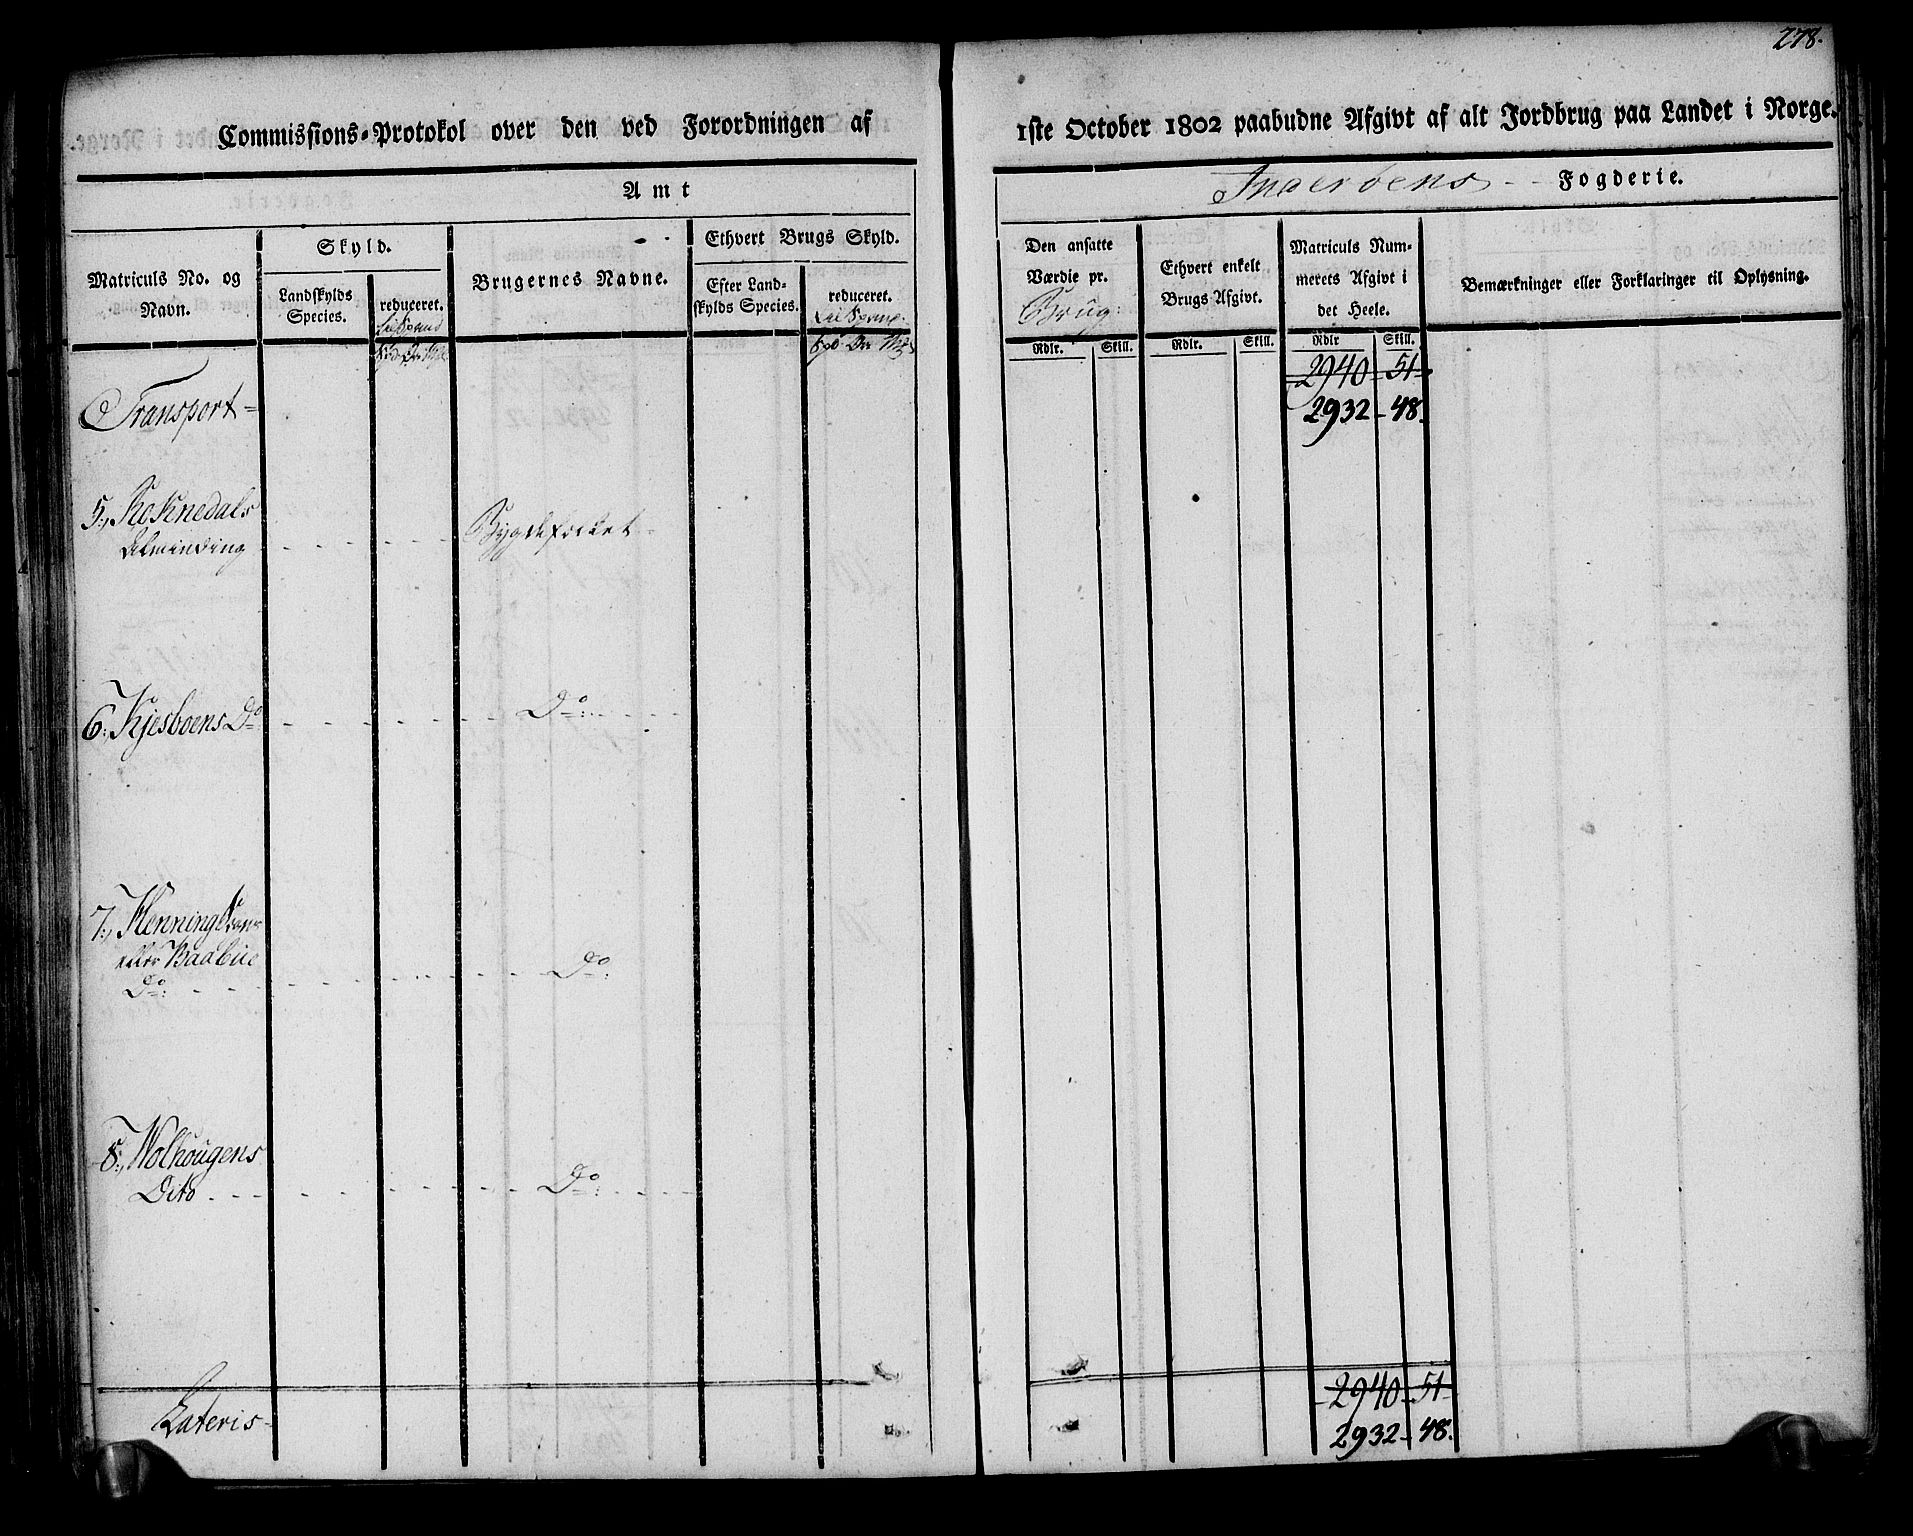 278.
Commissions-Protokol over den ved Forordningen af
1ste October 1802 paabudne Afgivt af alt Jordbrug paa Landet i Norge.
Amt
Inderøens Fogderie.
Matriculs No. og Navn.
Skyld.
Landskylds Species.
reduceret.
Brugernes Navne.
Ethvert Brugs Skyld.
Efter Landskylds Species.
reduceret.
Den ansatte Værdie pr. Brug:
Ethvert enkelt Brugs Afgivt.
Matriculs Nummerets Afgivt i det Heele.
Bemærkninger eller Forklaringer til Oplysning.
Rdlr. Skill. Rdlr. Skill. Rdlr Skill.
2940 - 51
Transport = 2932 - 48.
5., Roknedals
Alminding Bygdefolket
6., Kjesboens Do Do:
7., Hennings
eller Baabue
Do: Do:
8., Wolhougens
Dito Do:
2940 - 51
Lateris 2932 - 48.